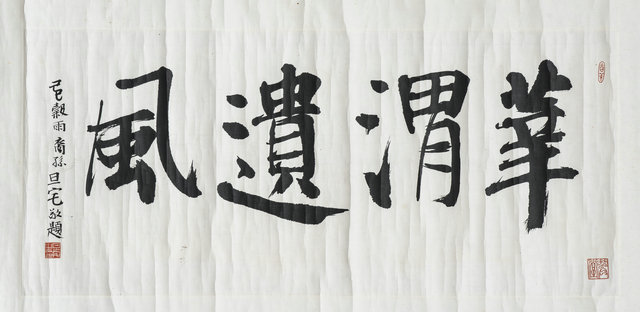 華渭遺風
己巳穀雨裔孫旦宅敬題